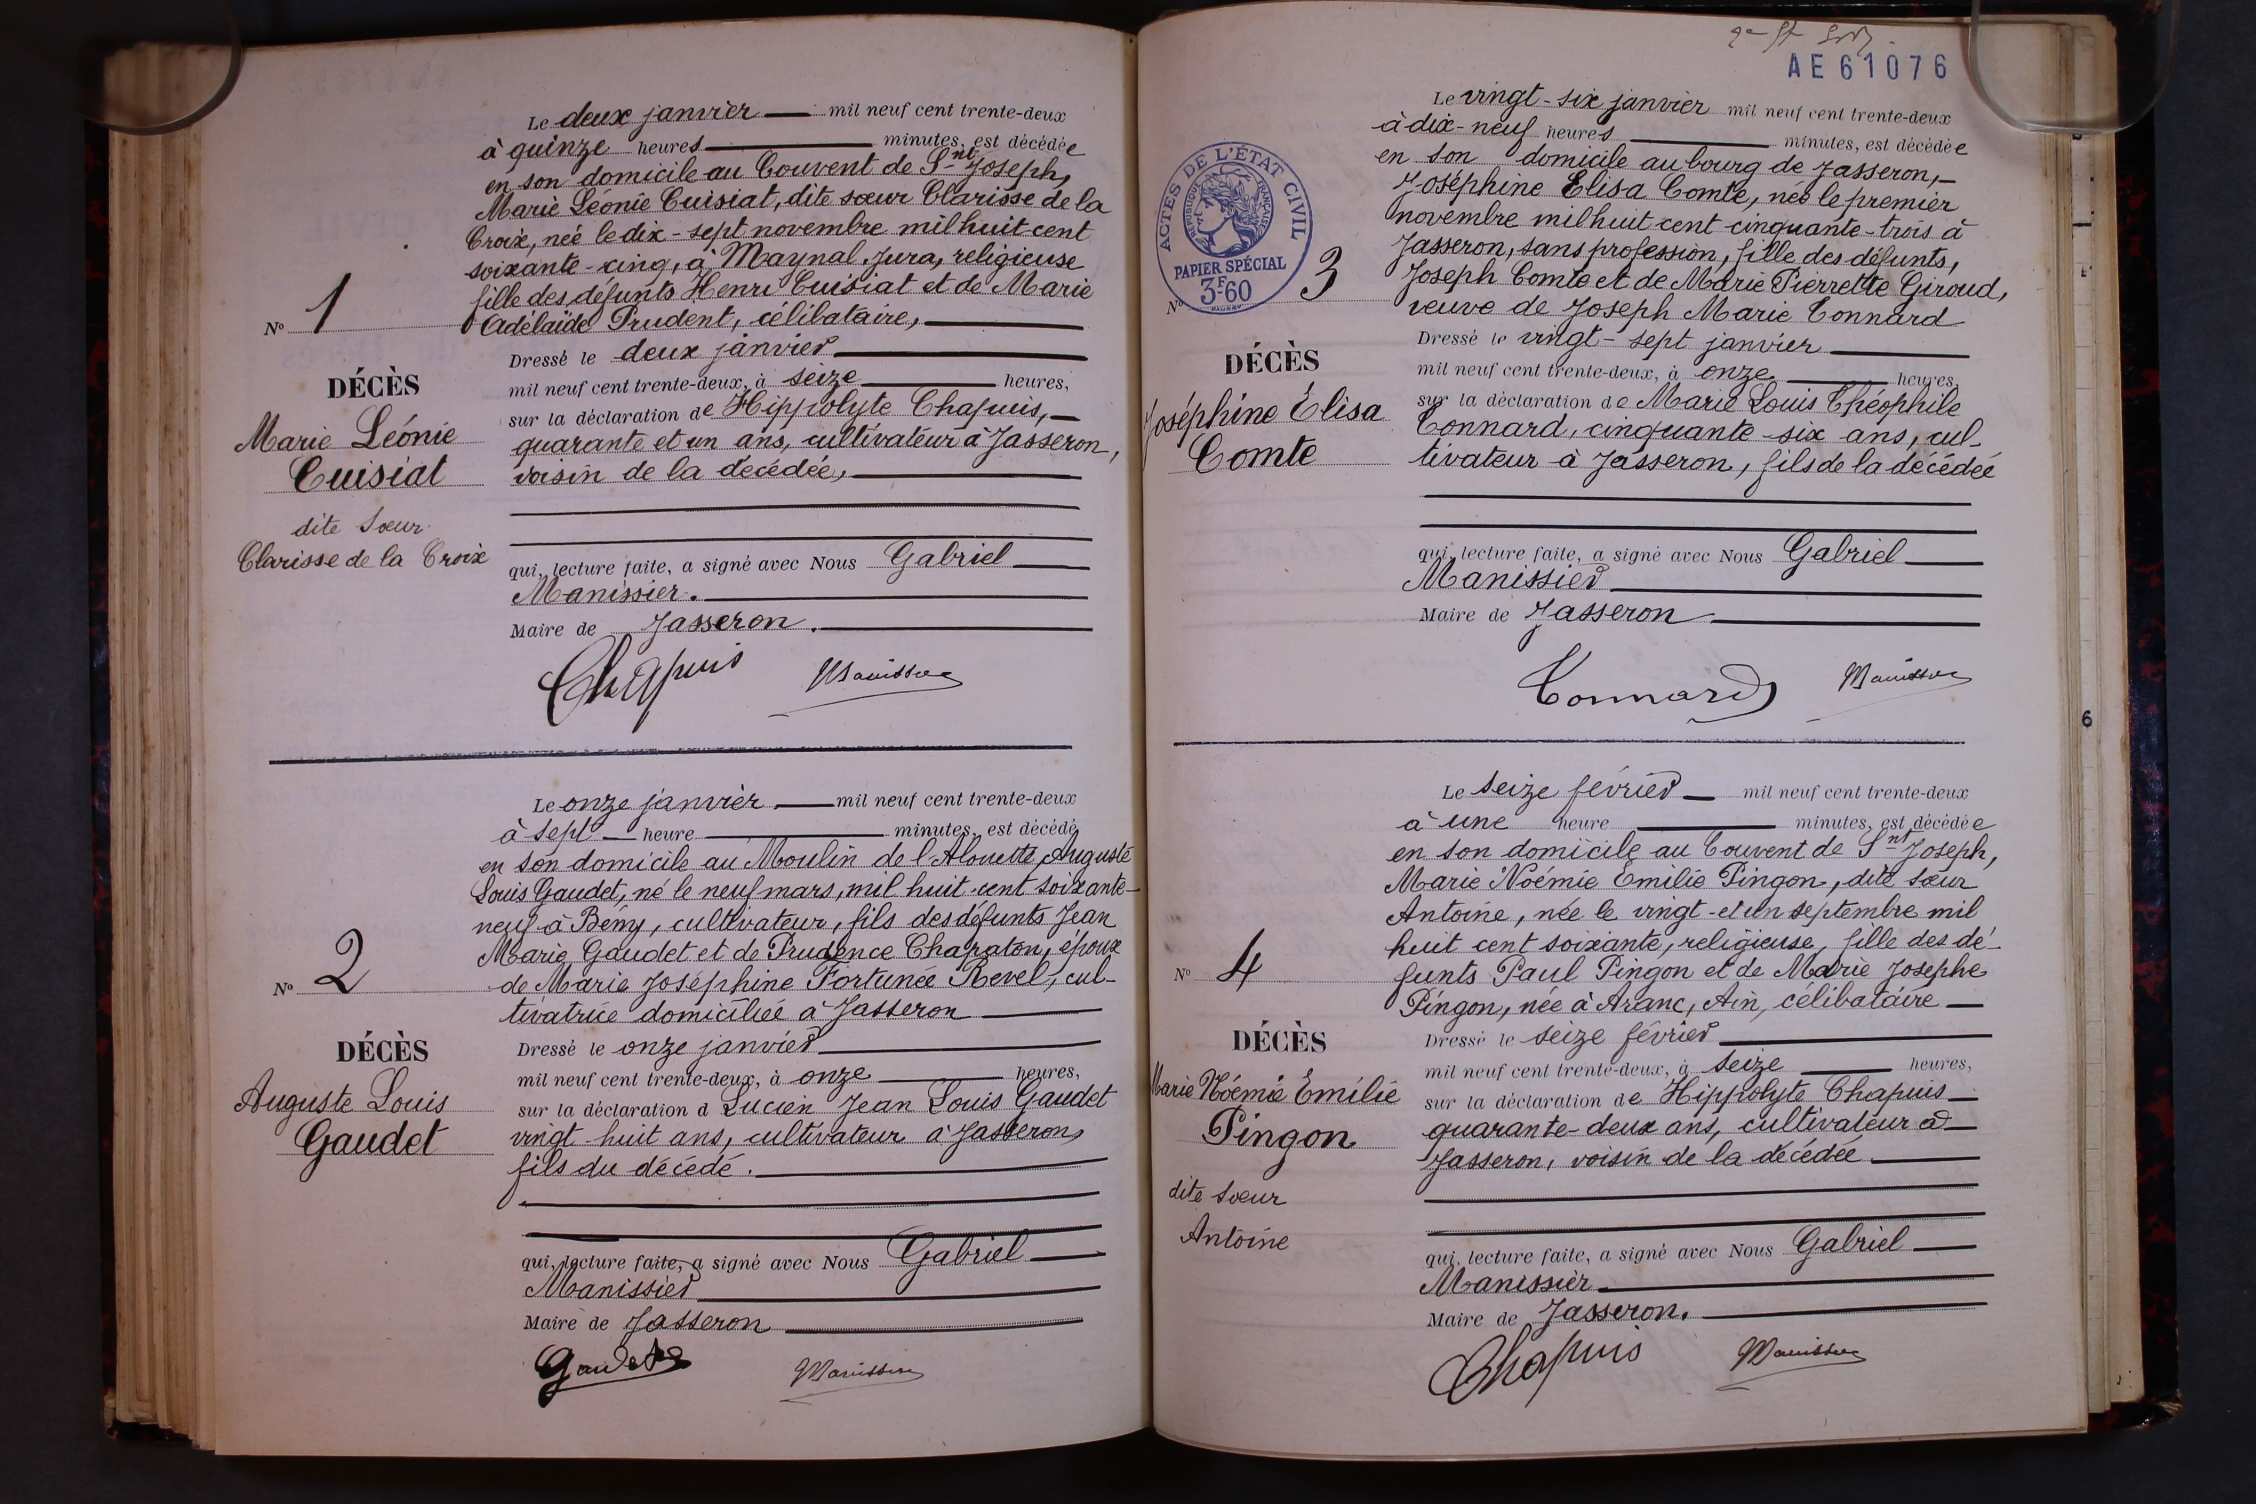 Le deux janvier mil neuf cent trente-deux
à quinze heures minutes, est décédée
en son domicile au Couvent de Snt Joseph,
Marie Léonie Cuisiat, dite sœur Clarisse de la
Croix, née le dix-sept novembre mil huit cent
soixante-cinq, à Maynal, Jura, religieuse
fille des défunts Henri Cuisiat et de Marie
Adélaïde Prudent, célibataire,
No 1
DÉCÈS
Marie Léonie
Cuisiat
dite Sœur
Clarisse de la Croix
Dressé le deux janvier
mil neuf cent trente-deux, à seize heures,
sur la déclaration de Hippolyte Chapuis,
quarante et un ans, cultivateur à Jasseron,
voisin de la décédée,
qui, lecture faite, a signé avec Nous Gabriel
Manissier.
Maire de Jasseron.
Chapuis Manissier
Le onze janvier mil neuf cent trente-deux
à sept heure minutes, est décédé
en son domicile au Moulin de l'Alouette, Auguste
Louis Gaudet, né le neuf mars, mil huit cent soixante-
neuf à Bény, cultivateur, fils des défunts Jean
Marie Gaudet et de Prudence Charaton, époux
de Marie Joséphine Fortunée Revel, cul-
tivatrice domiciliée à Jasseron
No 2
DÉCÈS
Auguste Louis
Gaudet
Dressé le onze janvier
mil neuf cent trente-deux, à onze heures,
sur la déclaration d Lucien Jean Louis Gaudet
vingt-huit ans, cultivateur à Jasseron,
fils du décédé.
qui, lecture faite, a signé avec Nous Gabriel
Manissier
Maire de Jasseron
Gaudet Manissier
AE61076
Le vingt-six janvier mil neuf cent trente-deux
à dix-neuf heures minutes, est décédée
en son domicile au bourg de Jasseron,
Joséphine Elisa Comte, née le premier
novembre mil huit cent cinquante-trois à
Jasseron, sans profession, fille des défunts,
Joseph Comte et de Marie Pierrette Giroud,
veuve de Joseph Marie Connard
ACTES DE L'ÉTAT CIVIL
RÉPUBLIQUE FRANÇAISE
PAPIER SPÉCIAL
3F60
No 3
DÉCÈS
Joséphine Élisa
Comte
Dressé le vingt-sept janvier
mil neuf cent trente-deux, à onze heures,
sur la déclaration de Marie Louis Théophile
Connard, cinquante-six ans, cul-
tivateur à Jasseron, fils de la décédée
qui, lecture faite, a signé avec Nous Gabriel
Manissier
Maire de Jasseron
Connard Manissier
6
Le seize février mil neuf cent trente-deux
à une heure minutes, est décédée
en son domicile au Couvent de Snt Joseph,
Marie Noémie Emilie Pingon, dite sœur
Antoine, née le vingt-et un septembre mil
huit cent soixante, religieuse, fille des dé-
funts Paul Pingon et de Marie Josephe
Pingon, née à Aranc, Ain, célibataire
No 4
DÉCÈS
Marie Noémie Émilie
Pingon
dite sœur
Antoine
Dressé le seize février
mil neuf cent trente-deux, à seize heures,
sur la déclaration de Hippolyte Chapuis
quarante-deux ans, cultivateur à
Jasseron, voisin de la décédée
qui, lecture faite, a signé avec Nous Gabriel
Manissier
Maire de Jasseron.
Chapuis Manissier